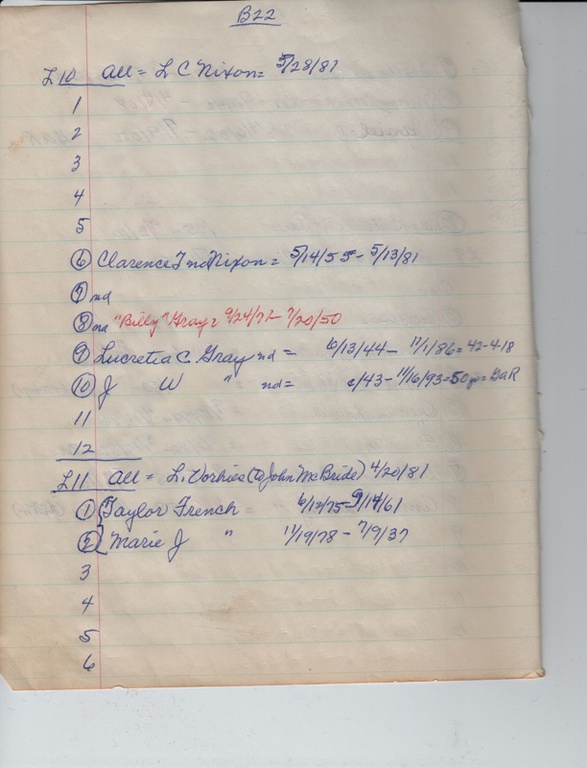 B22
L10 All = L C Nixon = 5/28/81
1
2
3
4
5
6 Clarence Nixon = 5/14/55 - 5/13/81
7 nd
8 nd "Billy" Gray = 9/24/72 - 7/20/50
9 Lucretia C. Gray nd = 6/13/44 - 11/1/86 = 42-4-18
10 J W " nd = c/43 - 11/16/93 = 50 = GaR
11
12
L11 All = L. Vorhies (to John McBride) 4/20/81
1 { Taylor French 6/12/75 - 9/14/61
2 { Marie J " 11/19/78 - 7/9/37
3
4
5
6